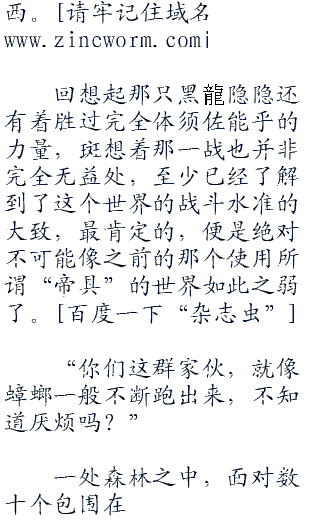 西。[请牢记住域名
www.zincworm.com|
回想起那只黑龍隐隐还
有着胜过完全体须佐能乎的
力量，斑想着那一战也并非
完全无益处，至少已经了解
到了这个世界的战斗水准的
大致，最肯定的，便是绝对
不可能像之前的那个使用所
谓“帝具”的世界如此之弱
了。[百度一下“杂志虫”]
“你们这群家伙，就像
蟑螂一般不断跑出来，不知
道厌烦吗？”
一处森林之中，面对数
十个包围在